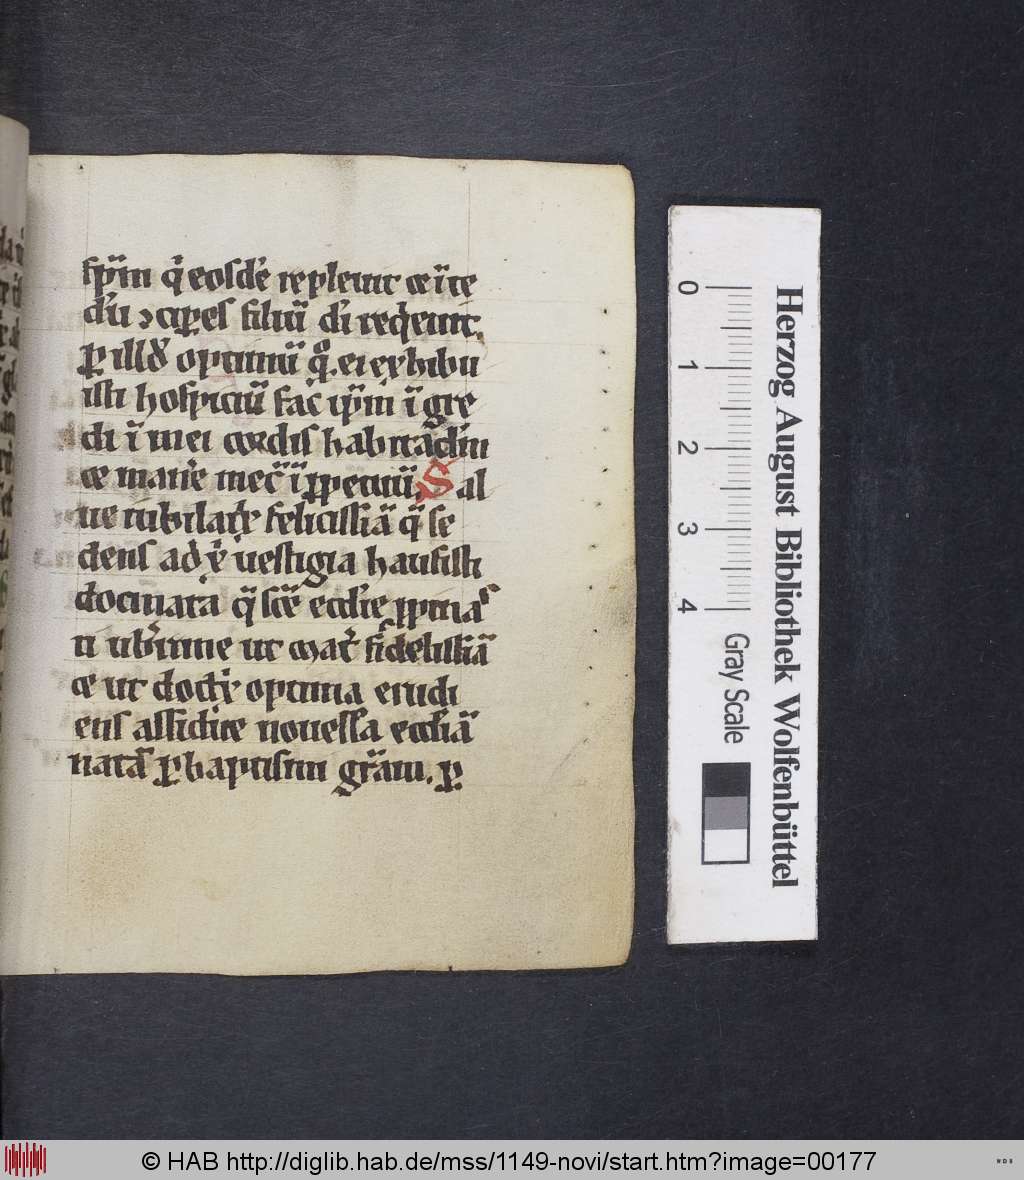 sp̅m q̇ eosdē repleuit ⁊ i̅t̅e
dn̄i ꝯcipes filiū di reqͥeuit.
ꝑ illd optimū qͦ ei exhibu
isti hospiciū fac ip̅m īgre
di ī mei cordis habitac̅lm
⁊ man̄e mec̄ ī ꝑpetuū. Sal
ue
felicissīa q̄ se
dens ad
uestigia hausisti
docmata q̄ sc̄e eccl̄ie
ut mat̄ fidelissīa
⁊ ut
optima erudi
ens assidue nouella eccl̄iā
natā ꝑ baptismi gr̄am. ꝑ
Herzog August Bibliothek Wolfenbüttel
0 1 2 3 4 Gray Scale
© HAB http://diglib.hab.de/mss/1149-novi/start.htm?image=00177